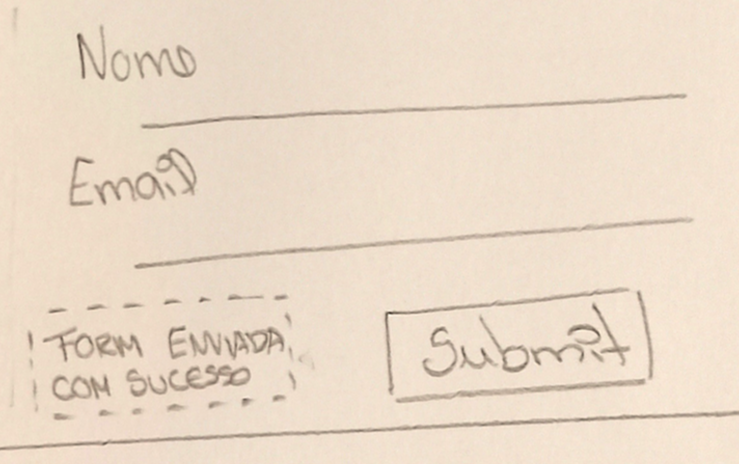 Nome
Email
FORM ENVIADA
COM SUCESSO
Submit